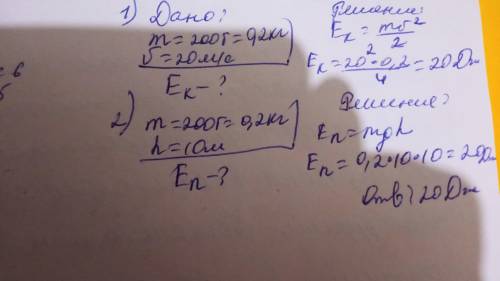 1) Дано:
m = 200г = 0,2кг
v = 20м/с
Eк - ?
Решение:
Eк = mv²/2
Eк = 20² · 0,2/4 = 20Дж
2)
m = 200г = 0,2кг
h = 10м
Eп - ?
Решение:
Eп = mgh
Eп = 0,2 · 10 · 10 = 20Дж
Отв: 20Дж
6